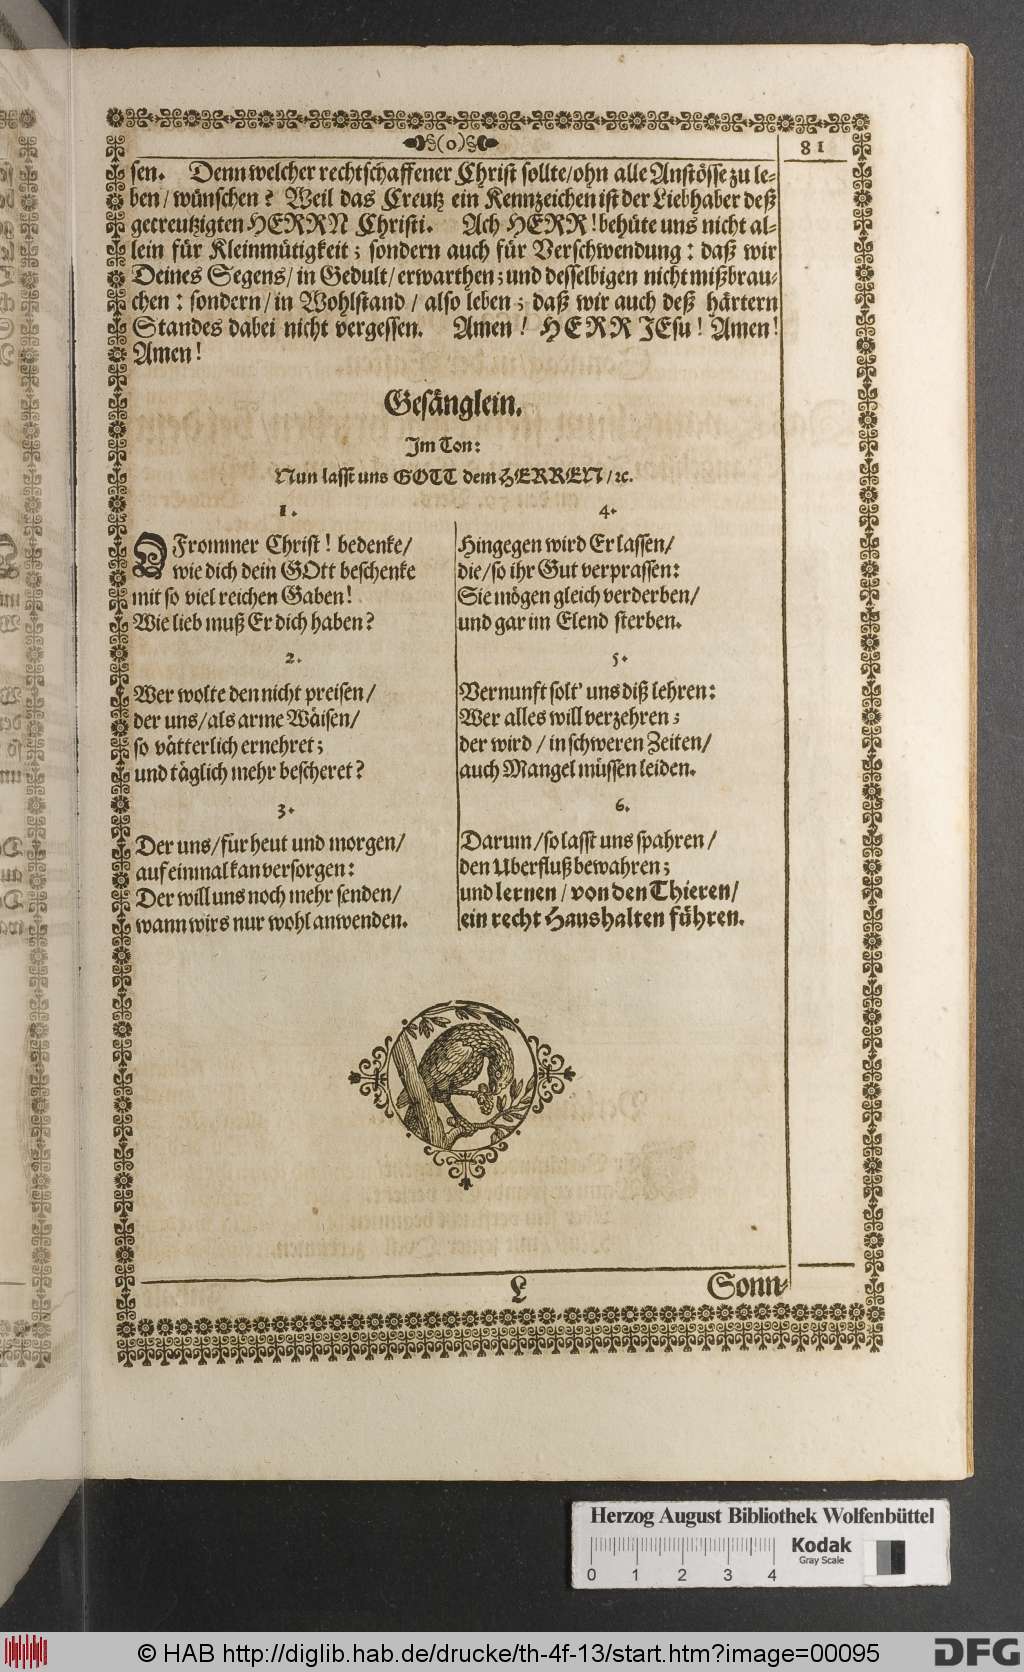 (o)
81
sen. Denn welcher rechtschaffener Christ sollte/ohn alle Anstösse zu le-
ben/wünschen? Weil das Creutz ein Kennzeichen ist der Liebhaber deß
gecreutzigten HERRN Christi. Ach HERR! behüte uns nicht al-
lein für Kleinmütigkeit; sondern auch für Verschwendung: daß wir
Deines Segens/in Gedult/erwarthen; und desselbigen nicht mißbrau-
chen: sondern/in Wohlstand/also leben; daß wir auch deß härtern
Standes dabei nicht vergessen. Amen! HERR JEsu! Amen!
Amen!
Gesänglein.
Im Ton:
Nun lasst uns GOTT dem HERREN/ꝛc.
1.
O Frommer Christ! bedenke/
wie dich dein GOtt beschenke
mit so viel reichen Gaben!
Wie lieb muß Er dich haben?
2.
Wer wolte den nicht preisen/
der uns/als arme Wäisen/
so vätterlich ernehret;
und täglich mehr bescheret?
3.
Der uns/für heut und morgen/
auf einmal kan versorgen:
Der will uns noch mehr senden/
wann wirs nur wohl anwenden.
4.
Hingegen wird Er lassen/
die/so ihr Gut verprassen:
Sie mögen gleich verderben/
und gar im Elend sterben.
5.
Vernunft solt' uns diß lehren:
Wer alles will verzehren;
der wird/in schweren Zeiten/
auch Mangel müssen leiden.
6.
Darum/so lasst uns spahren/
den Uberfluß bewahren;
und lernen/von den Thieren/
ein recht Haushalten führen.
L
Sonn-
Herzog August Bibliothek Wolfenbüttel
Kodak
Gray Scale
0 1 2 3 4
© HAB http://diglib.hab.de/drucke/th-4f-13/start.htm?image=00095
DFG